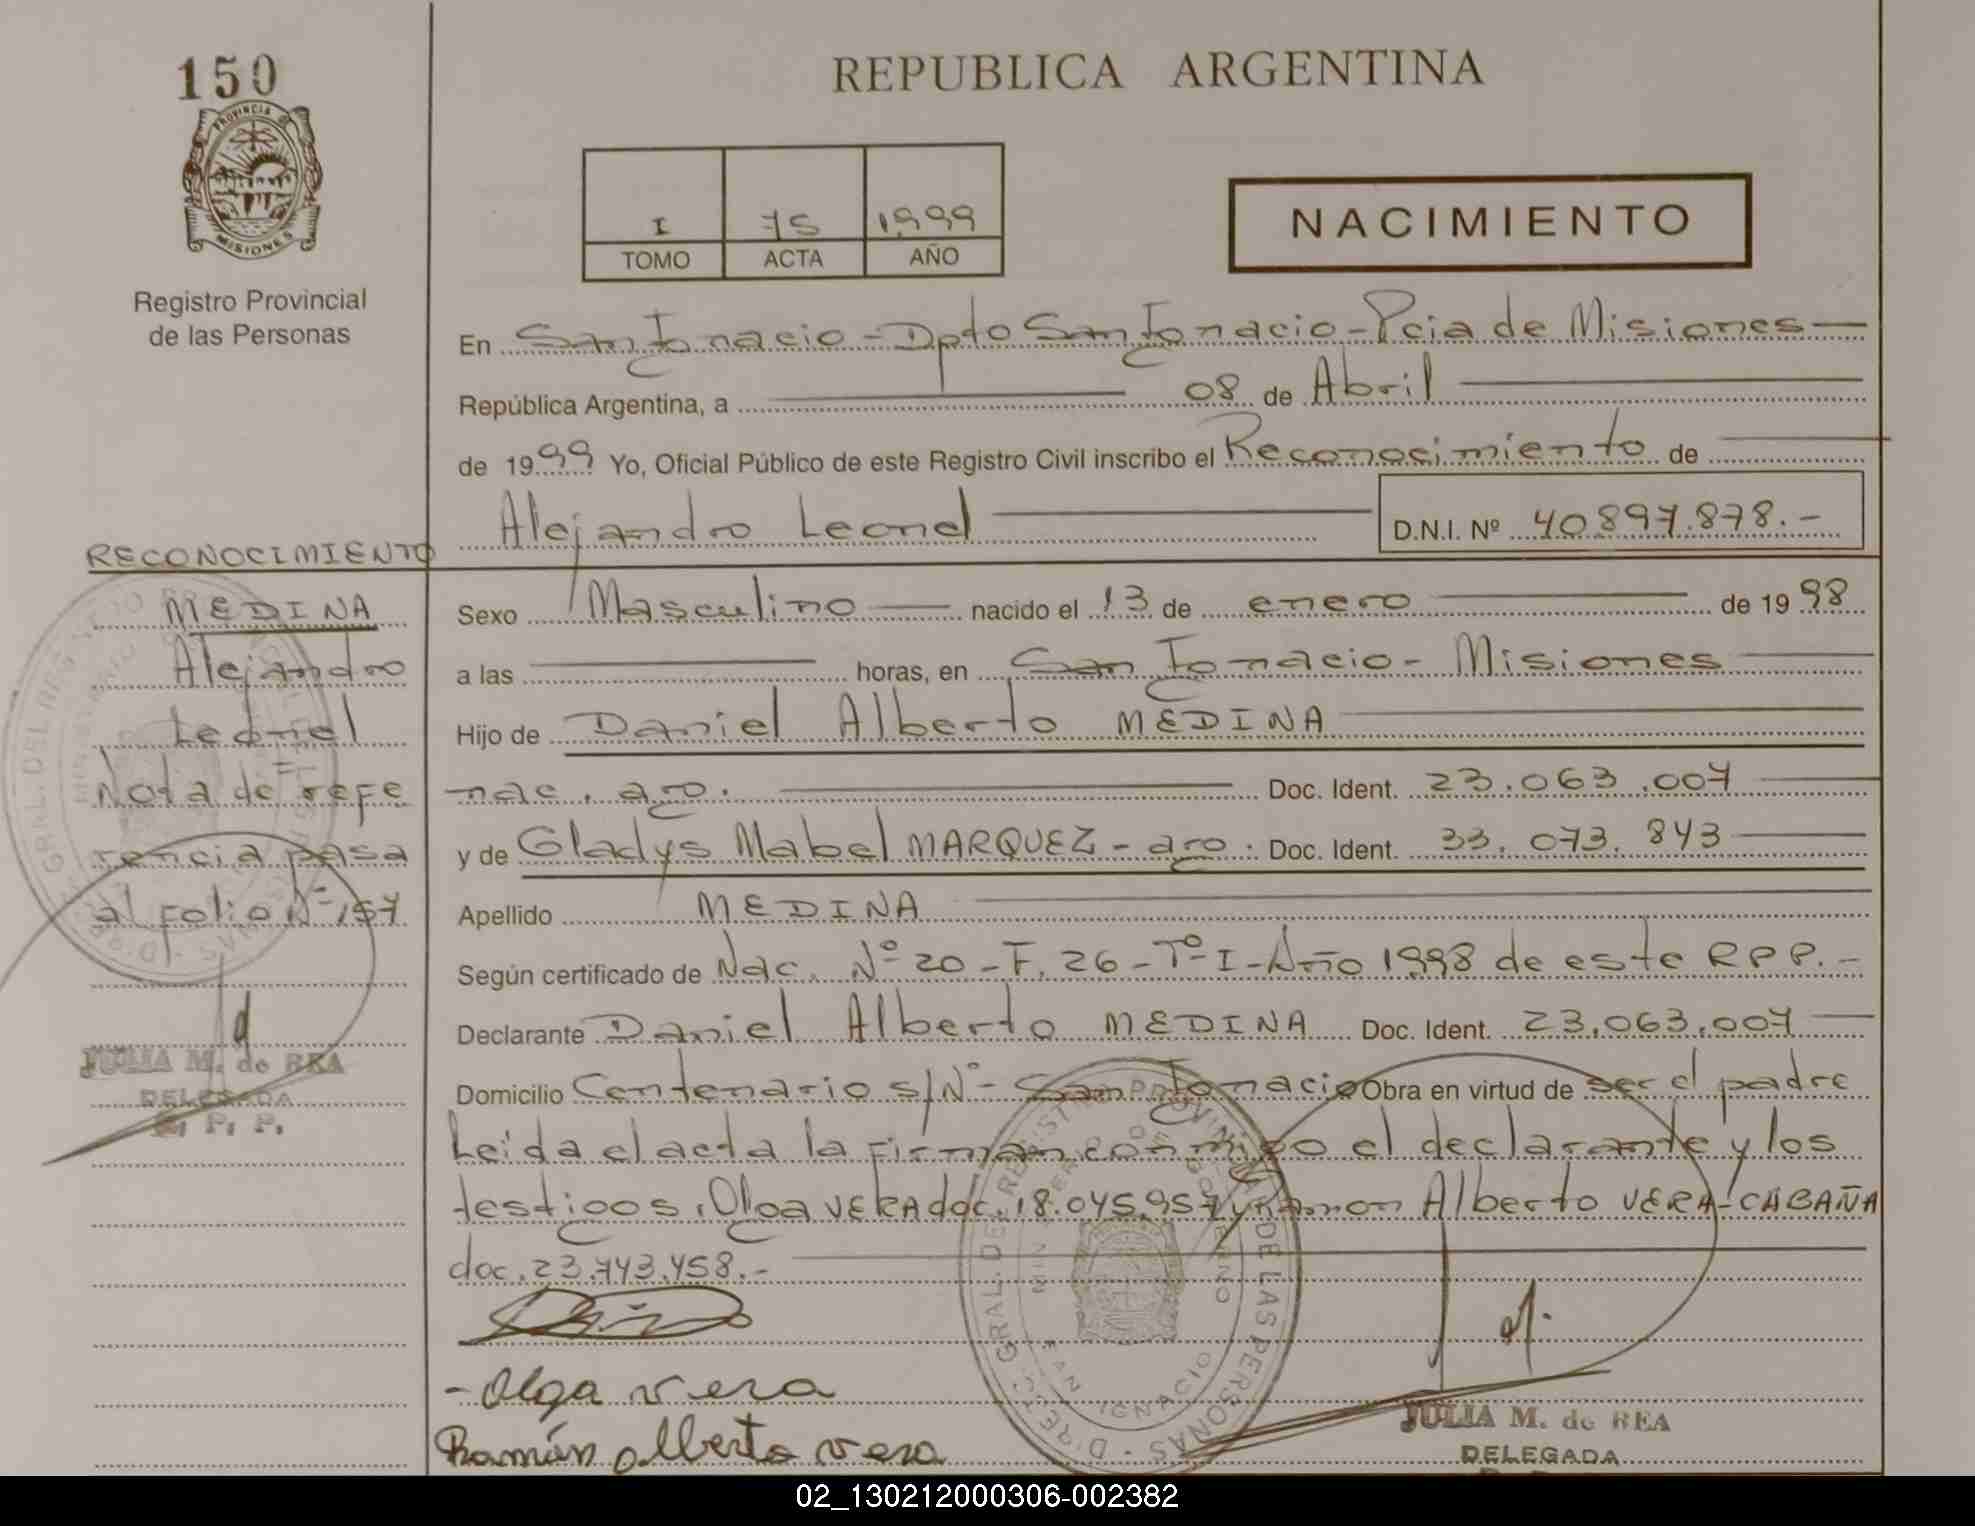 150
PROVINCIA DE
MISIONES
Registro Provincial
de las Personas
REPUBLICA ARGENTINA
I 75 1999
TOMO ACTA AÑO
NACIMIENTO
En San Ignacio - Dpto San Ignacio - Pcia de Misiones
República Argentina, a 08 de Abril
de 1999 Yo, Oficial Público de este Registro Civil inscribo el Reconocimiento de
Alejandro Leonel D.N.I. Nº 40.897.878.-
Sexo Masculino nacido el 13 de enero de 1998
a las horas, en San Ignacio - Misiones
Hijo de Daniel Alberto MEDINA
nac. arg. Doc. Ident. 23.063.007
y de Gladys Mabel MARQUEZ - arg. Doc. Ident. 33.073.843
Apellido MEDINA
Según certificado de Nac. Nº 20 - F. 26 - Tº I - Año 1998 de este RPP. -
Declarante Daniel Alberto MEDINA Doc. Ident. 23.063.007
Domicilio Centenario s/Nº - San Ignacio Obra en virtud de ser el padre
Leída el acta la firman conmigo el declarante y los
testigos, Olga VERA doc. 18.045.957 y Ramon Alberto VERA - CABAÑA
doc. 23.743.458.-
- Olga vera
Ramón Alberto vera
JULIA M. de REA
DELEGADA
RECONOCIMIENTO
MEDINA
Alejandro
Leonel
Nota de refe
rencia pasa
al folio Nº 157
JULIA M. de REA
DELEGADA
R. P. P.
DIREC. GRAL. DEL REGISTRO PROVINCIAL DE LAS PERSONAS
SAN IGNACIO
02_130212000306-002382